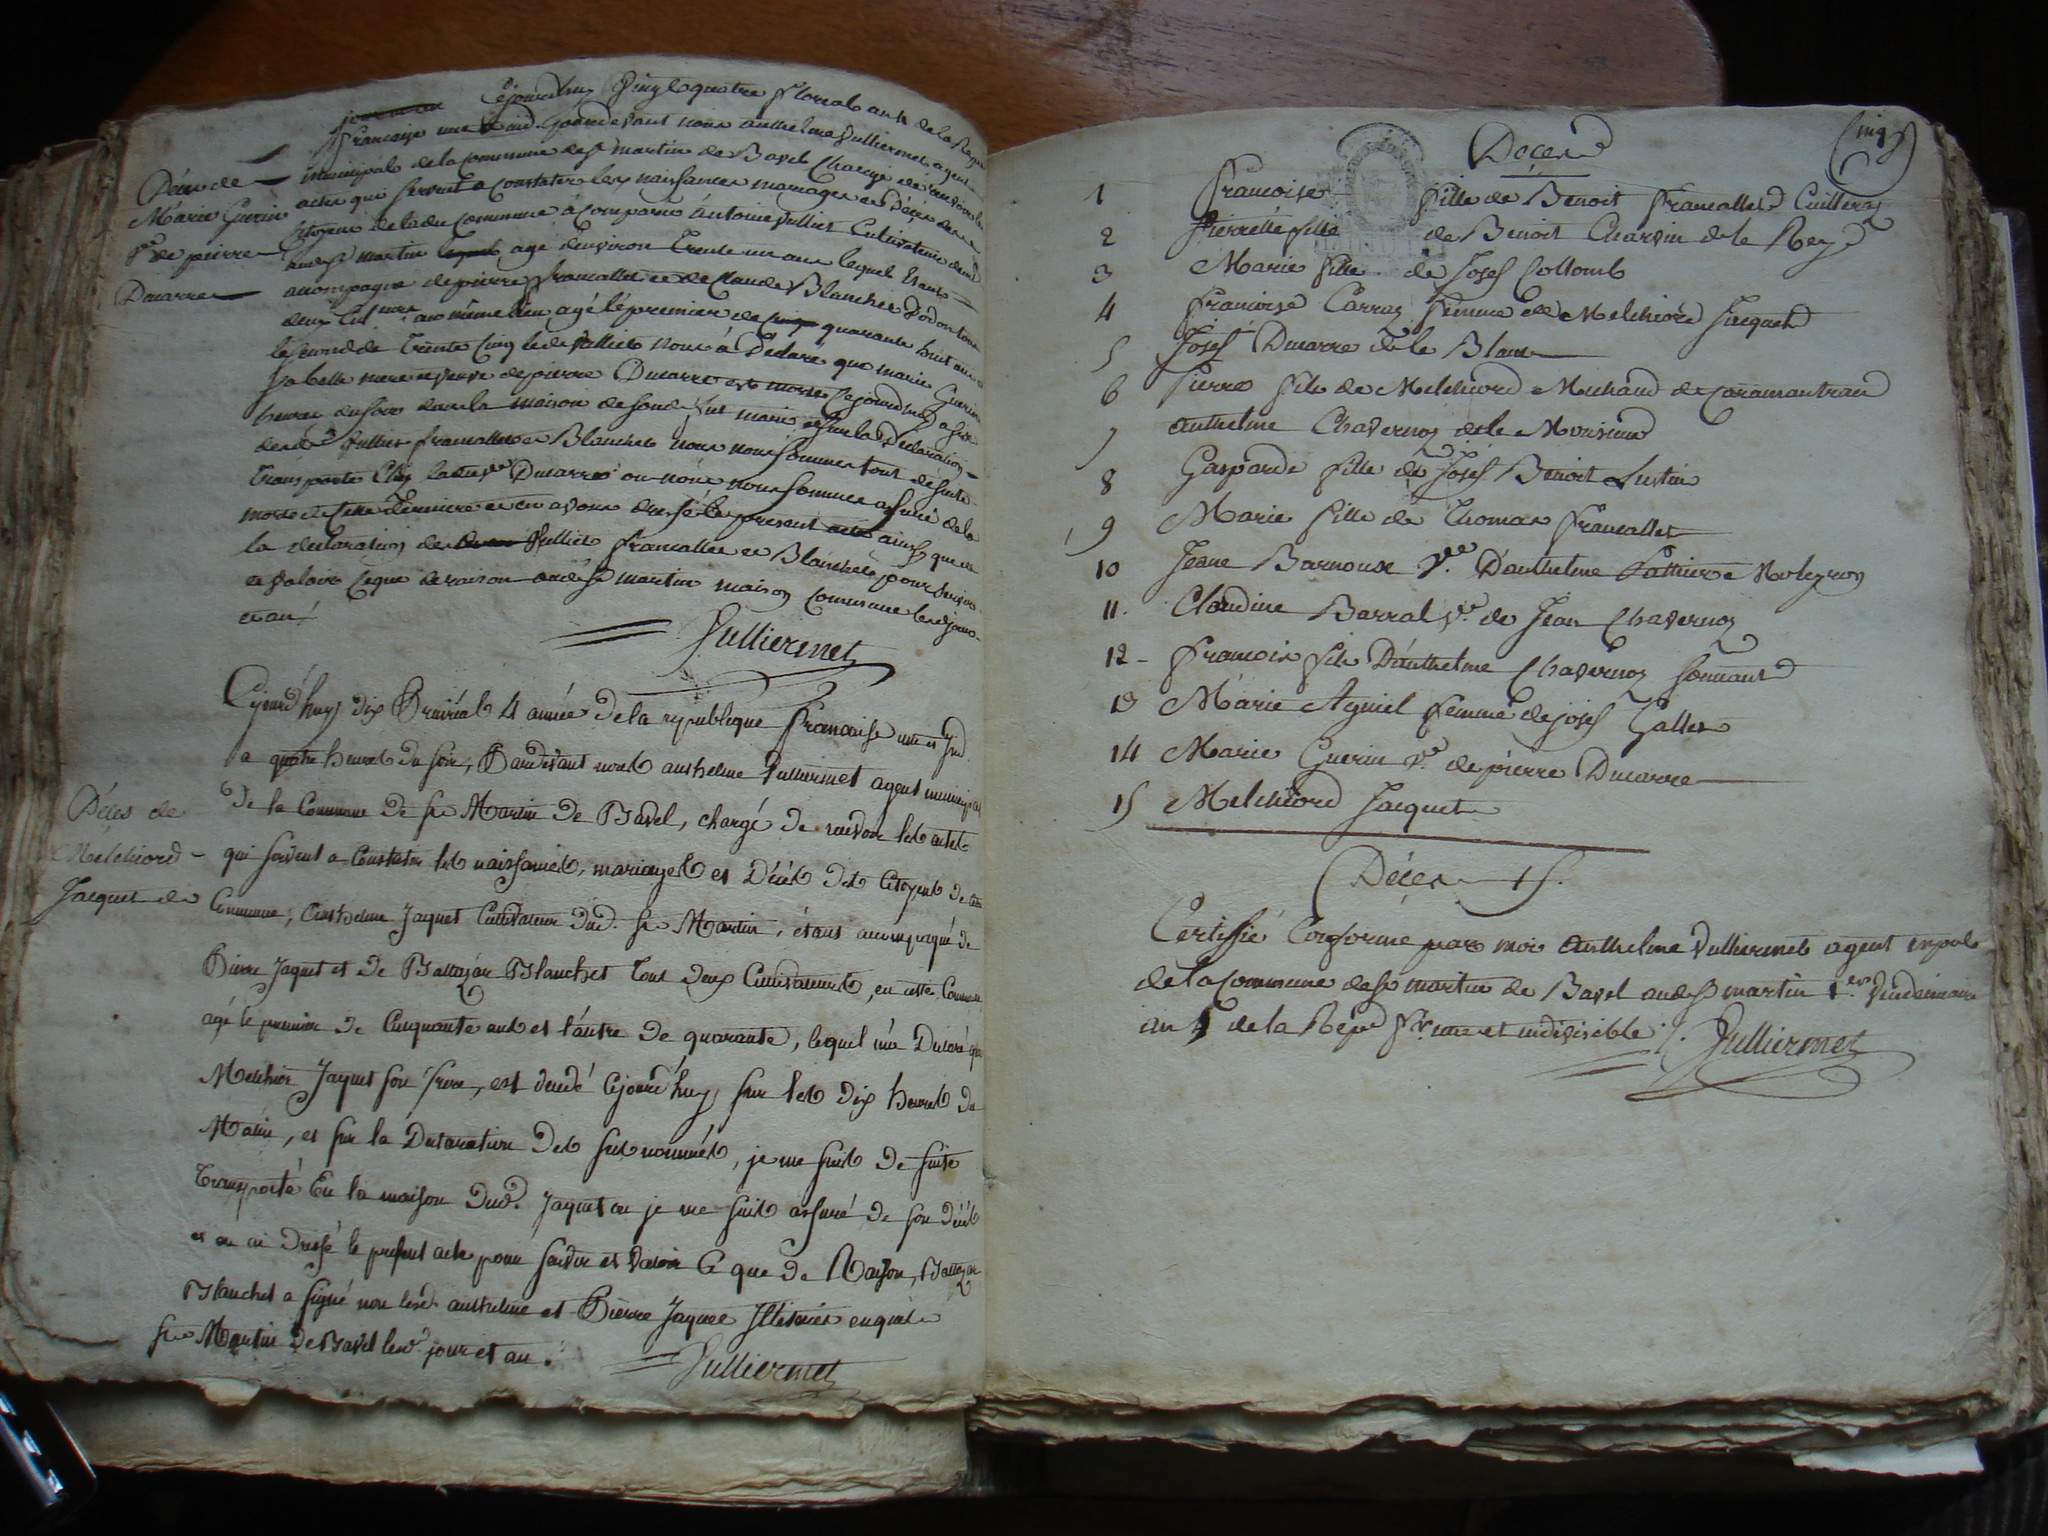 Cejourdhuy Vingt quatre floreal an 4 de la Repu
francaise une & ind. pardevant nous anthelme Vulliermet agent
municipal de la commune de st martin de Bavel charge de recevoir les
actes qui servent a constater les naissances mariages et Décès des
citoyens de ladte commune à comparu Antoine Vulliet Cultivateur dud
lieu st martin agé d'environ trente un ans lequel Etant
accompagne de pierre francallet et de Claude Blanchet
deux Cultrs au même lieu agé le premier de quarante huit ans
le second de trente Cinq led Vulliet nous à Déclaré que marie Guerin
sa belle mere veuve de pierre Ducarre est morte cejourdhuy a
heures du soir dans la maison de sond et sur la Declaration
desd Vullier francallet et Blanchet nous nous sommes tout de suite
transporté Chez ladte ve Ducarre ou nous nous sommes assuré de la
mort de cette Derniere et en avons dressé le present acte ainsy que
la declaration des Vulliet francallet et Blanchet pour servir
et valoir ce que de raison aud st martin maison commune lesd jour
et an
Décès de
Marie Guerin
ve de pierre
Ducarre
Vulliermet
Cejourd'huy dix Prairial 4 année de la republique francaise une et Ind.
a quatre heures du soir, Pardevant nous anthelme Vulliermet agent municipal
de la Commune de st Martin de Bavel, chargé de recevoir les actes
qui servent a Constater les naissances, mariages et Décès des Citoyens de cette
Commune, Anthelme Jaquet Cultivateur dud. st Martin, étant accompagné de
Pierre Jaquet et de Baltazar Blanchet tous deux Cultivateurs, en cette Commune
agé le premier de Cinquante ans et l'autre de quarante, lequel m'a Déclaré que
Melchior Jaquet son frere, est decedé cejourd'huy sur les dix heures du
Matin, et sur la Declaration des sus nommés, je me suis de suite
transporté En la maison dud. Jaquet ou je me suis assuré de son décès
et en ai dressé le present acte pour servir et valoir Ce que de Raison, Baltazar
Blanchet a signé non lesd anthelme et Pierre Jaquet Illeteres enquis
st Martin de Bavel lesd jour et an.
Décès de
Melchiord
Jacquet
Vulliermet
Décès
1 francoise fille de Benoit francallet Cuilleray
2 Pierrette fille de Benoit Charvin de le Rey
3 Marie fille de Josef Collomb
4 francoise Carray femme de Melchiord Jacquet
5 Josef Ducarre de le Blanc
6 Pierre fils de Melchiord Michaud de Caramantran
7 Anthelme Chavernoz
8 Gasparde fille de Josef Benoit Lustin
9 Marie fille de Thomas francallet
10 Jeane Barnoux ve D'anthelme
11. Claudine Barral ve de Jean Chavernoz
12 francois fils D'anthelme Chavernoz
13 Marie Ayniel femme de josef Gallet
14 Marie Guerin ve de pierre Ducarre
15 Melchiord Jacquet
Décès 15.
Certiffié Conforme par moi Anthelme Vulliermet agent mpal
de la Commune de st martin de Bavel aud st martin 1er Vendemiaire
an 5 de la Repu fr. une et indivisible
Vulliermet